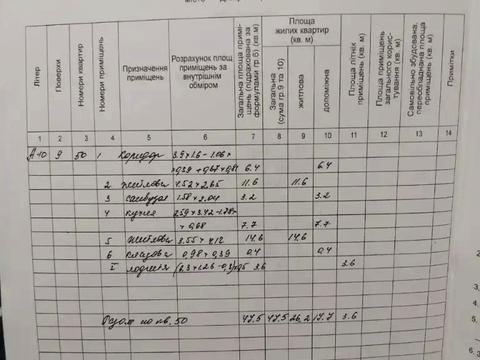 Літер
Поверхи
Номери квартир
Номери приміщень
Призначення приміщень
Розрахунок площ приміщень за внутрішнім обміром
Загальна площа приміщень (підрахована за формулами гр 6) (кв. м)
Площа жилих квартир (кв. м)
Загальна (сума гр 9 та 10)
житлова
допоміжна
Площа літніх приміщень (кв. м)
Площа приміщень загального користування (кв. м)
Самовільно збудована, переобладнана площа приміщень (кв. м)
Примітки
1 2 3 4 5 6 7 8 9 10 11 12 13 14
А-10 9 50 1 Коридор 6.4 6.4
2 житлова 4.52 × 2.65 11.6 11.6
3 санвузол 1.58 × 2.04 3.2 3.2
4 кухня 7.7 7.7
× 0,68
5 житлова 3.55 × 4.12 14.6 14.6
6 кладова 0,98 × 0,39 0,4 0,4
І лоджія 3.6 3.6
Разом по кв. 50 47,5 47,5 26,2 17.7 3.6